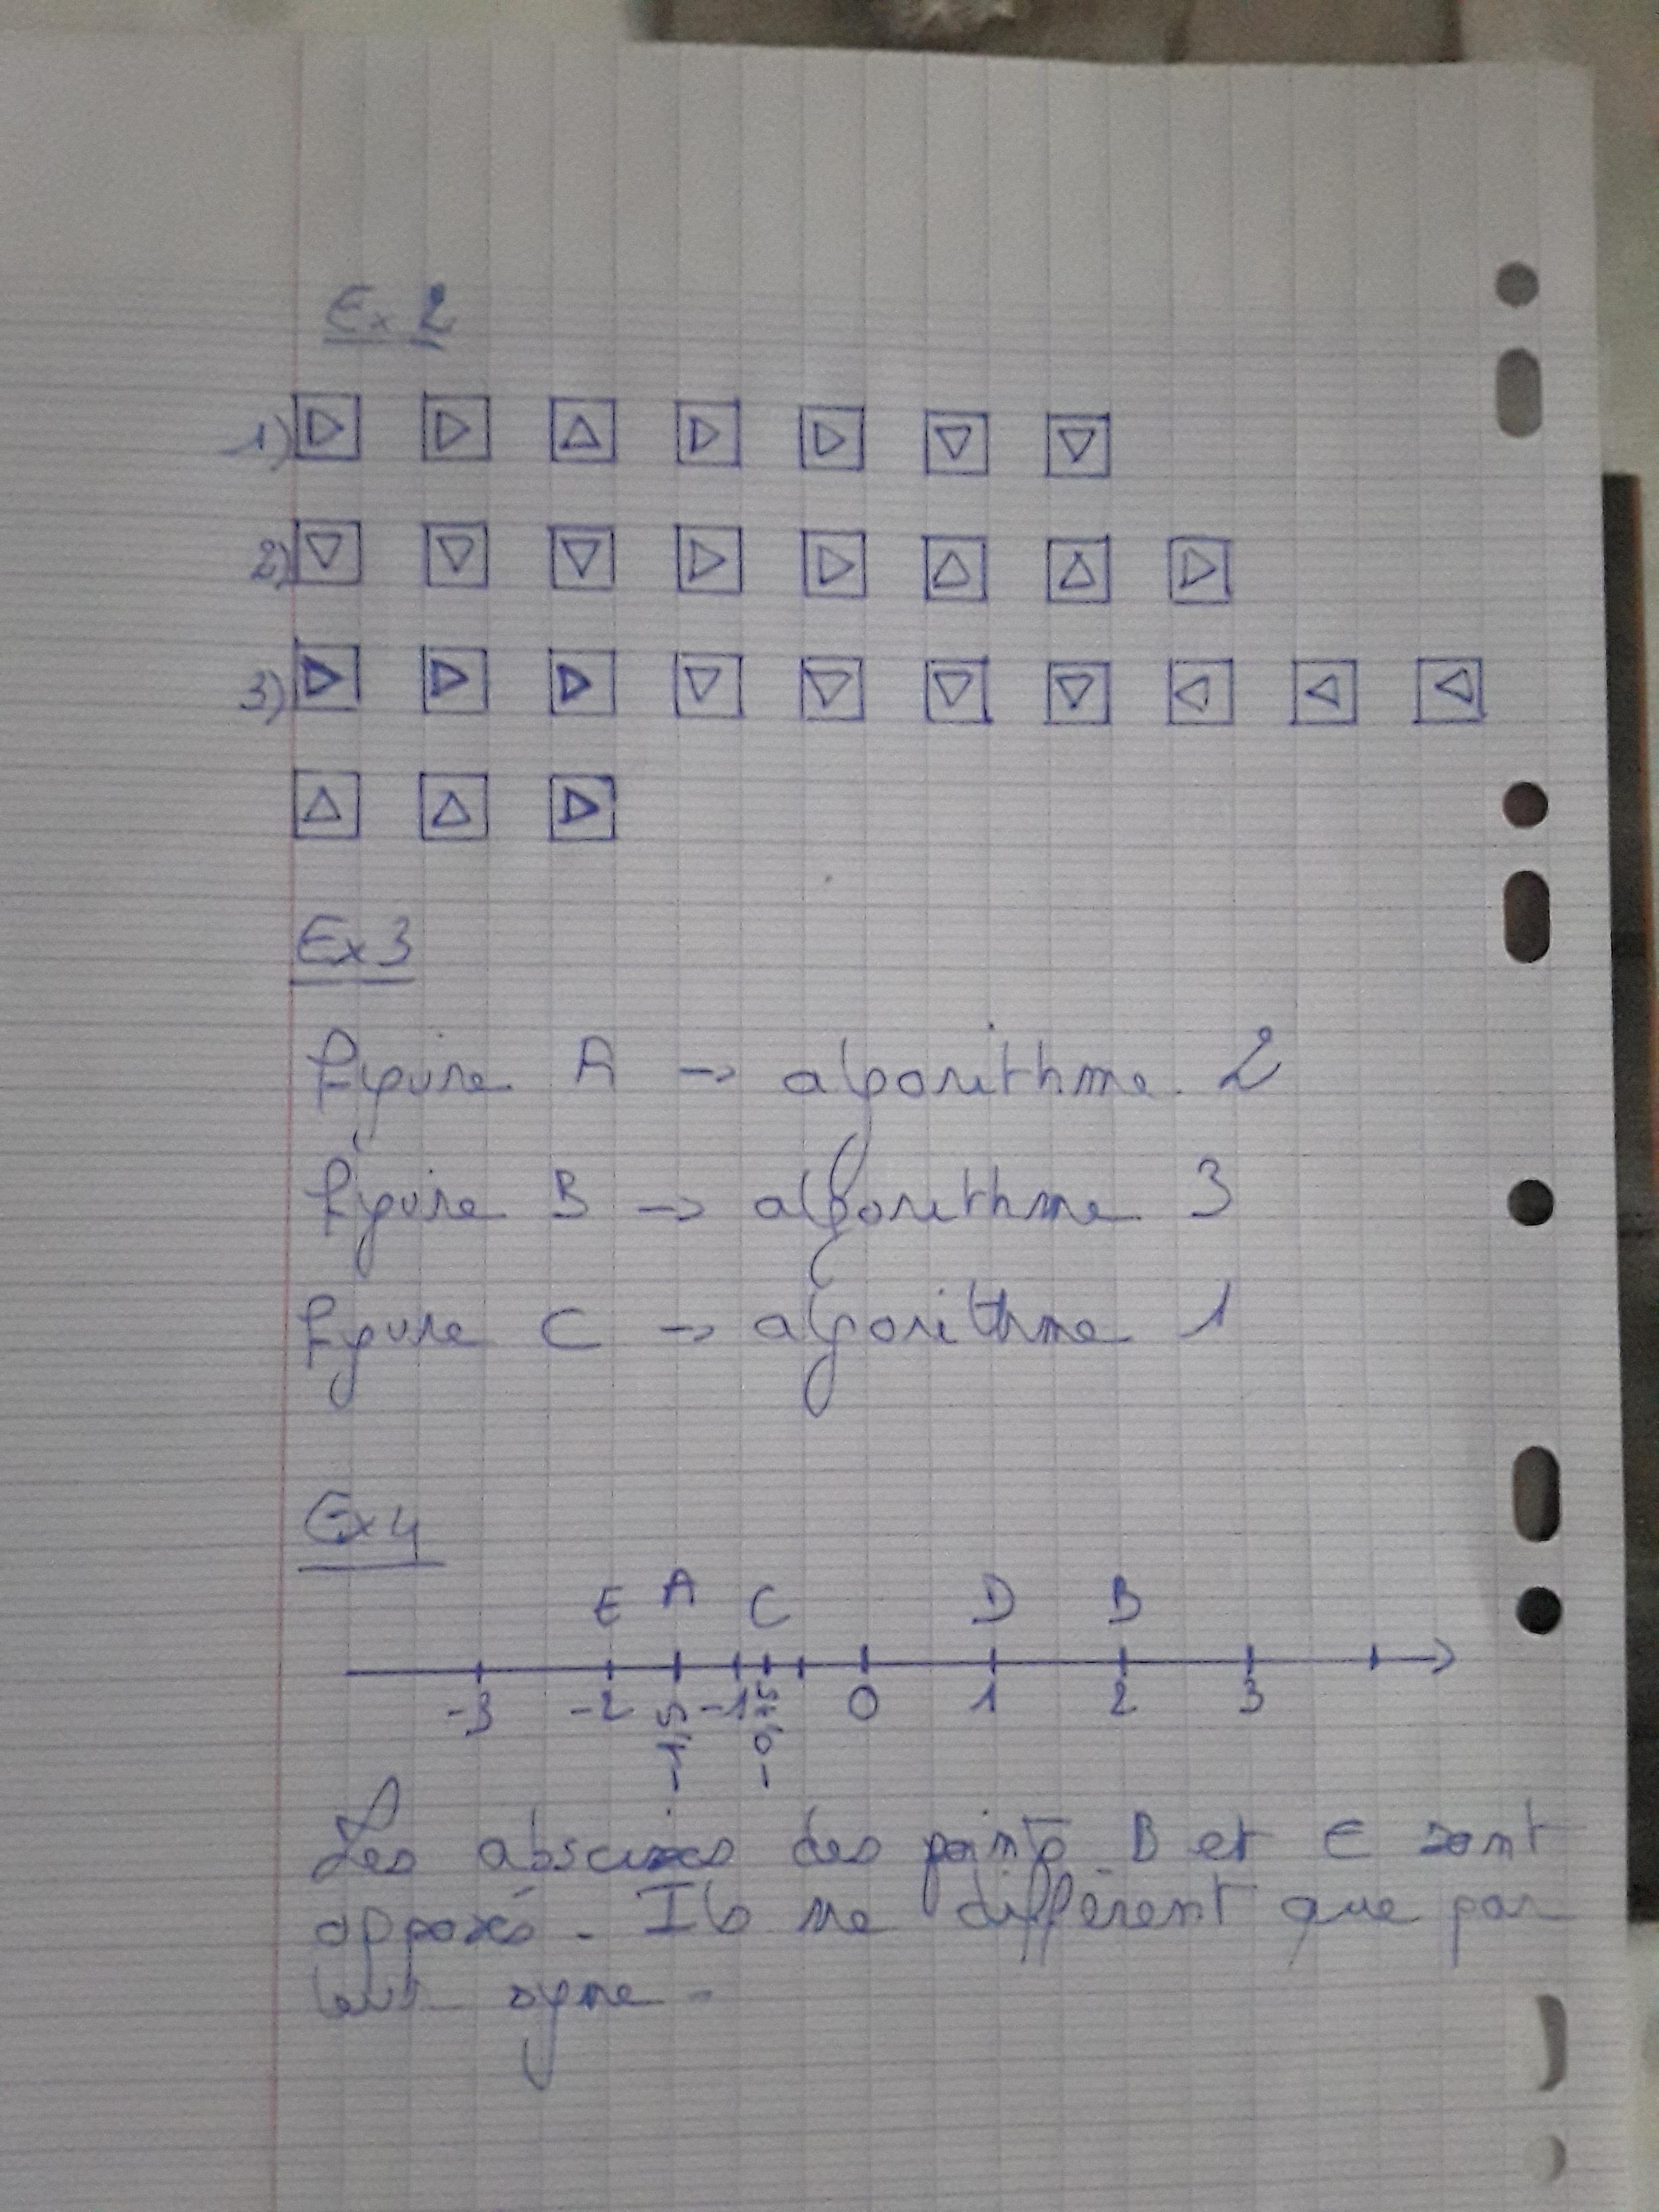 Ex 2
1)
2)
3)
Ex 3
figure A → algorithme 2
figure B → algorithme 3
figure C → algorithme 1
Ex 4
E A C D B
-3 -2 -1,5 -1 -0,75 0 1 2 3
Les abscisses des points B et E sont
opposés. Ils ne diffèrent que par
leur signe.